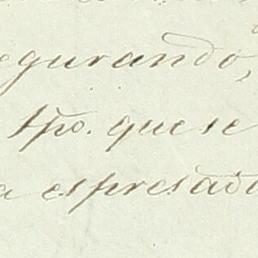 egurando,
tpo. que se
a espresad